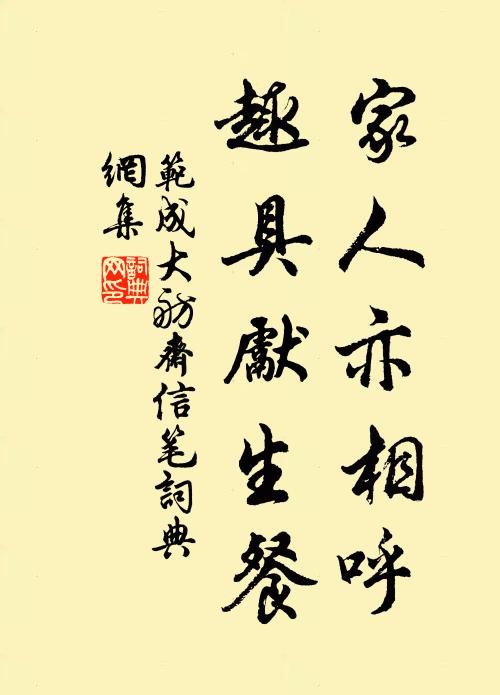 家人亦相呼
趣具獻生餐
範成大舫齋信笔詞典
網集
詞典
网印